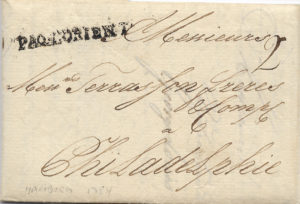 PAQ. L'ORIENT
Messieurs
Mess.rs Terrasson freres
& Comp.
a
Philadelphie
1784